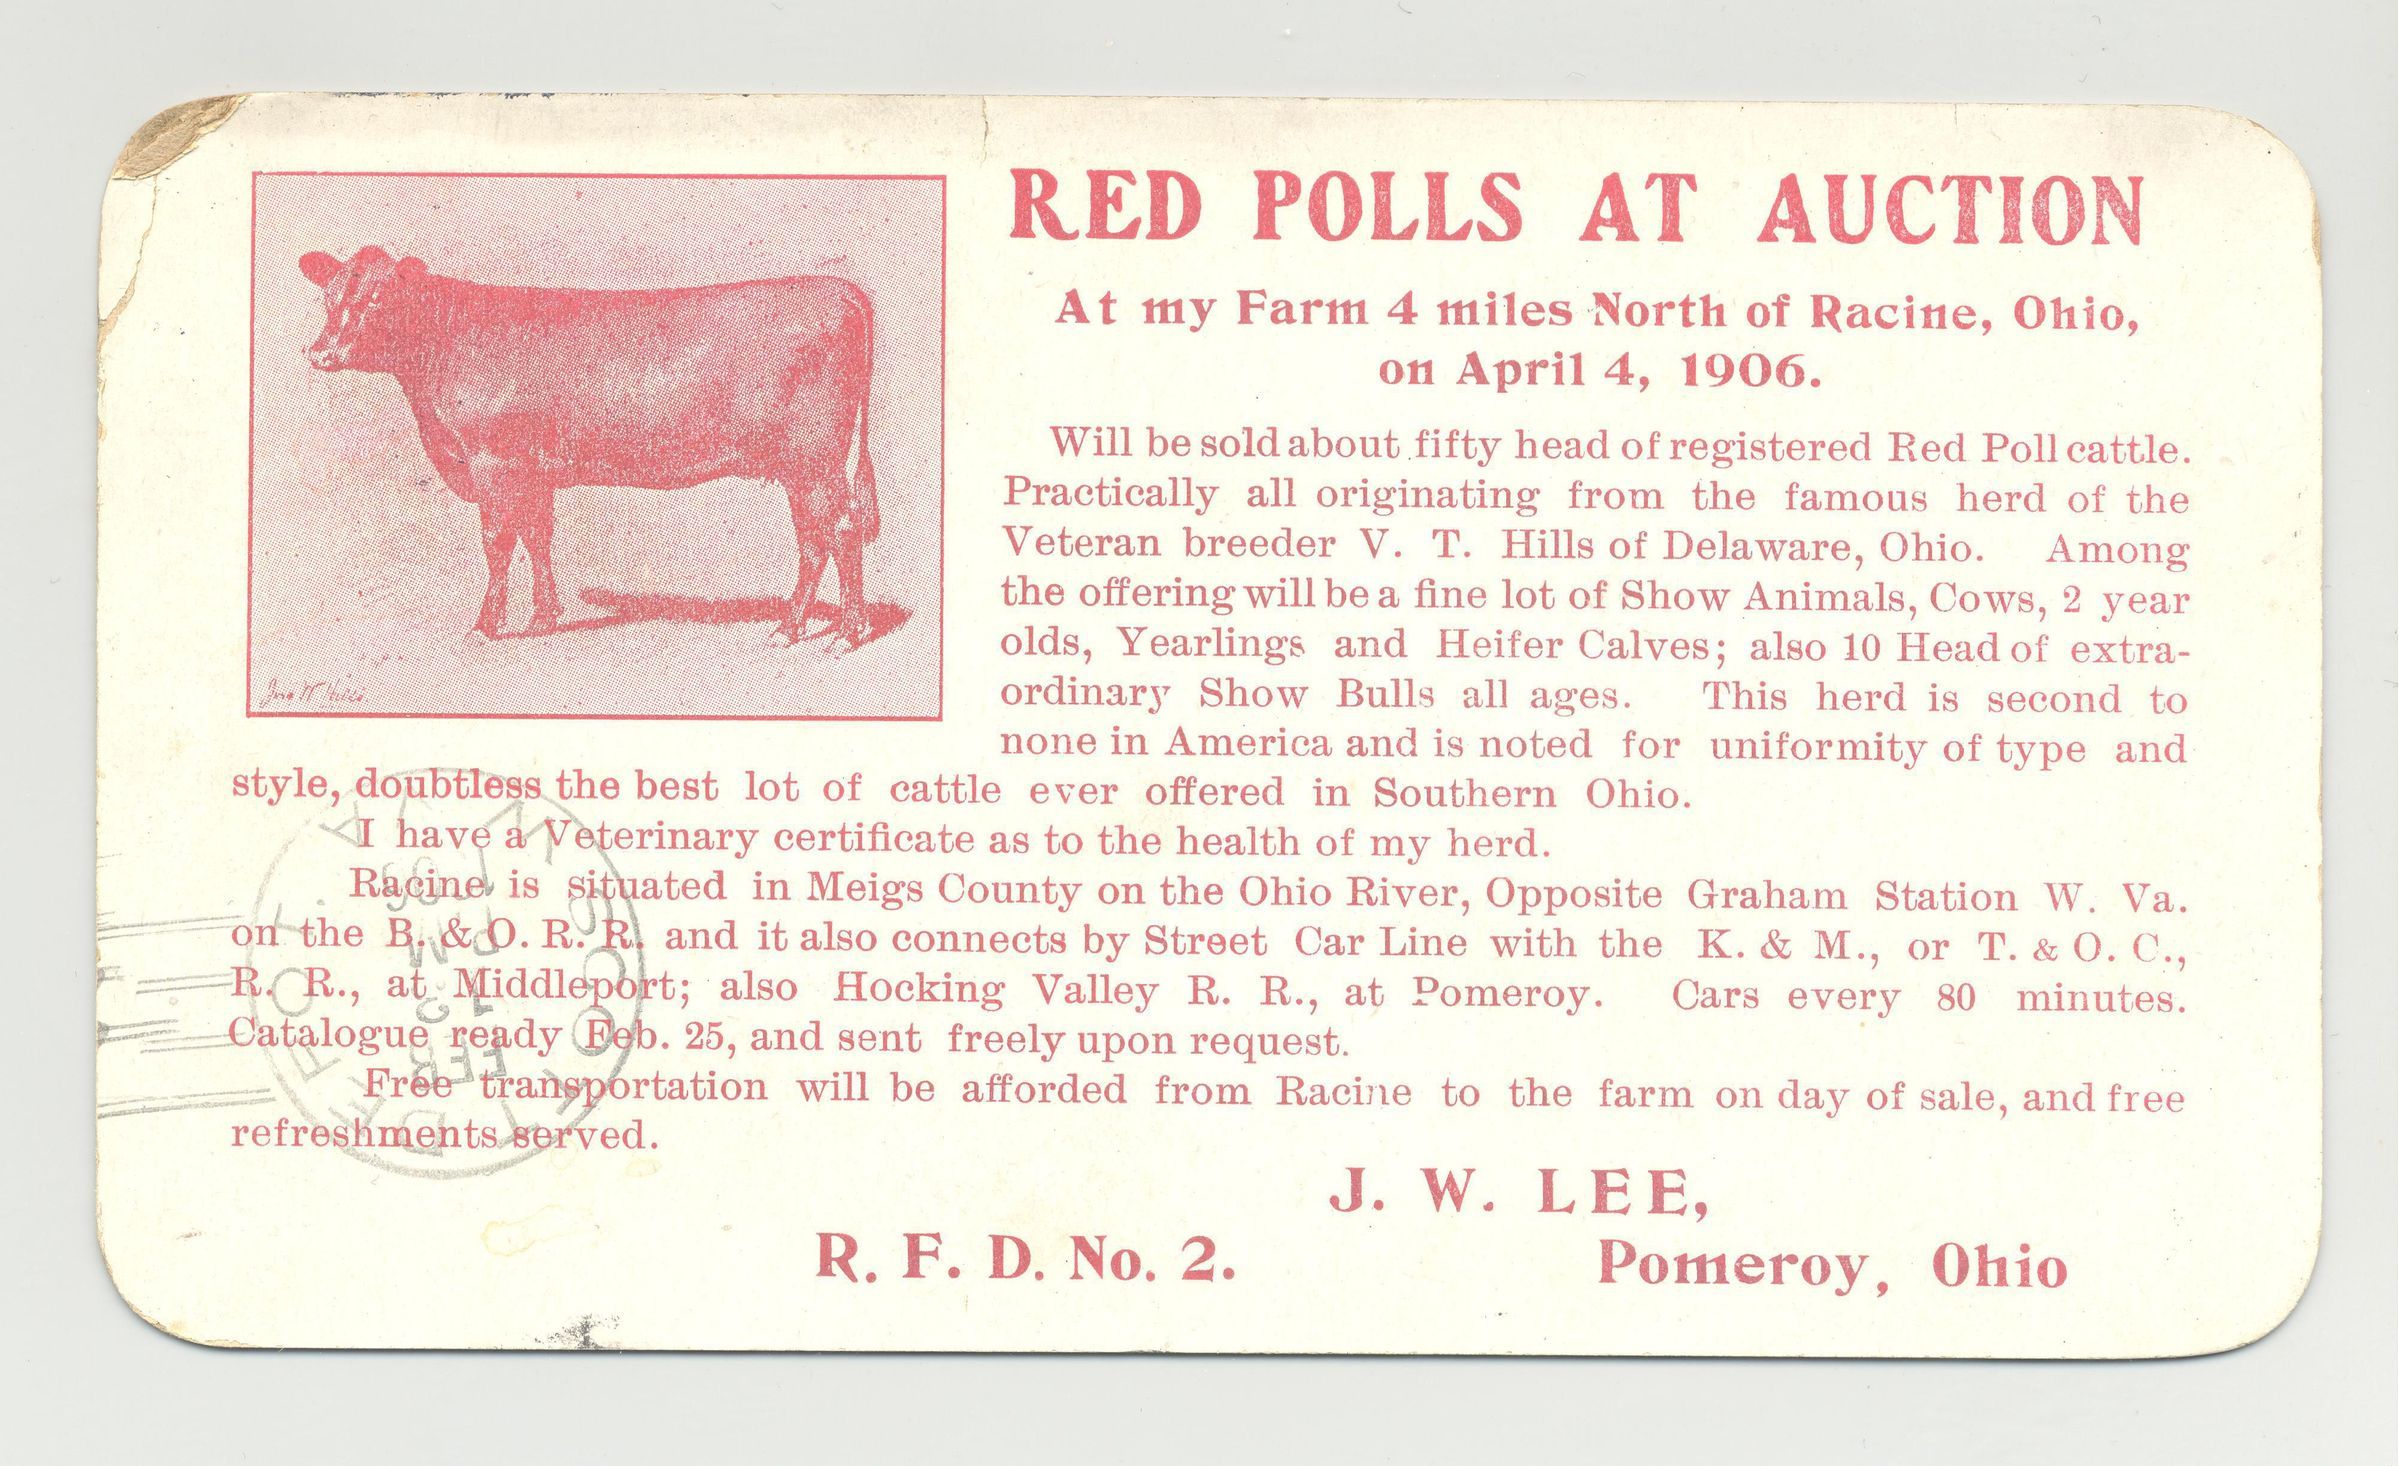 RED POLLS AT AUCTION
At my Farm 4 miles North of Racine, Ohio,
on April 4, 1906.
Will be sold about fifty head of registered Red Poll cattle.
Practically all originating from the famous herd of the
Veteran breeder V. T. Hills of Delaware, Ohio. Among
the offering will be a fine lot of Show Animals, Cows, 2 year
olds, Yearlings and Heifer Calves; also 10 Head of extra-
ordinary Show Bulls all ages. This herd is second to
none in America and is noted for uniformity of type and
style, doubtless the best lot of cattle ever offered in Southern Ohio.
I have a Veterinary certificate as to the health of my herd.
Racine is situated in Meigs County on the Ohio River, Opposite Graham Station W. Va.
on the B. & O. R. R. and it also connects by Street Car Line with the K. & M., or T. & O. C.,
R. R., at Middleport; also Hocking Valley R. R., at Pomeroy. Cars every 80 minutes.
Catalogue ready Feb. 25, and sent freely upon request.
Free transportation will be afforded from Racine to the farm on day of sale, and free
refreshments served.
J. W. LEE,
R. F. D. No. 2. Pomeroy, Ohio
Jno W Hills
FEB
12
PM